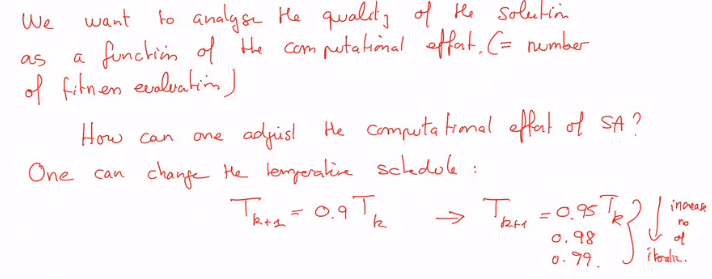 We want to analyse the quality of the solution
as a function of the computational effort. (= number
of fitness evaluation)
How can one adjust the computational effort of SA?
One can change the temperature schedule :
T_{k+1} = 0.9 T_k → T_{k+1} = 0.95 T_k } ↓ increase
0.98 no
0.99. of
iteratio.